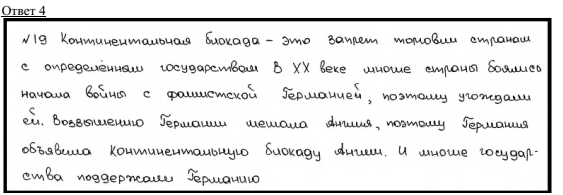 Ответ 4
№19 Континентальная блокада – это запрет товоым странам
с определённым государством В XX веке многие страны боялись
начала войны с фашистской Германией, поэтому угождали
ей. Возвышению Германии мешала Англия, поэтому Германия
объявила континентальную блокаду Англии. И многие государ-
ства поддержали Германию